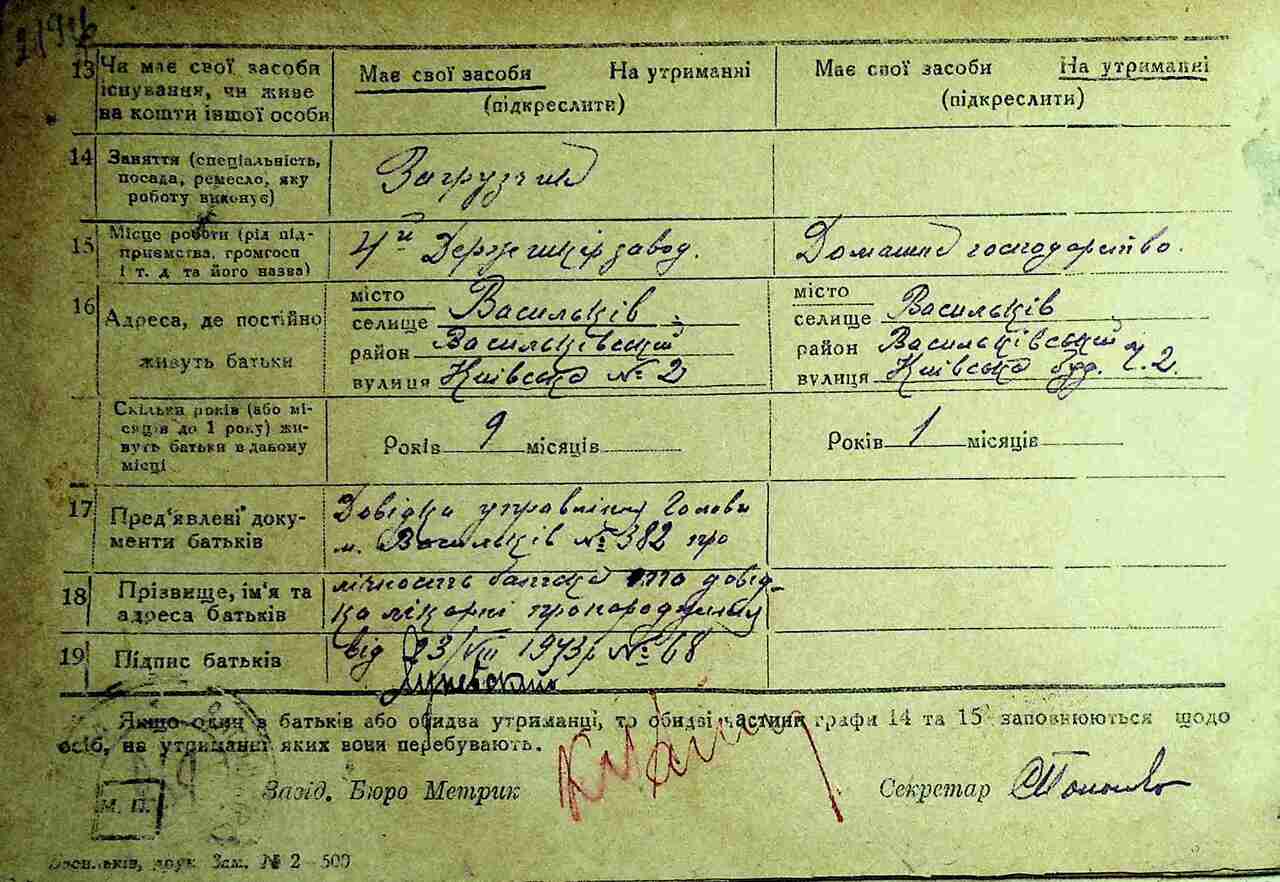 13 Чи має свої засоби існування, чи живе на кошти іншої особи
Має свої засоби На утриманні
(підкреслити)
Має свої засоби На утриманні
(підкреслити)
14 Заняття (спеціальність, посада, ремесло, яку роботу виконує)
Загрузчик
15 Місце роботи (рід підприємства, громгосп і т. д та його назва)
4й Держшкірзавод.
Домашнє господарство.
16 Адреса, де постійно живуть батьки
місто
селище Васильків
район Васильківський
вулиця Київська № 2
місто
селище Васильків
район Васильківський
вулиця Київська буд. ч. 2.
Скільки років (або місяців до 1 року) живуть батьки в даному місці
Років 9 місяців
Років 1 місяців
17 Пред'явлені документи батьків
Довідка управління Голови
м. Васильків № 382 про
18 Прізвище, ім'я та адреса батьків
лічность батька та довід-
ка лікарні про народження
19 Підпис батьків
від 23/VIII 1943р № 68
Якщо один з батьків або обидва утриманці, то обидві частини графи 14 та 15 заповнюються щодо
осіб, на утриманні яких вони перебувають.
М. П.
Завід. Бюро Метрик
Секретар
Васильків, друк. Зам. № 2—500